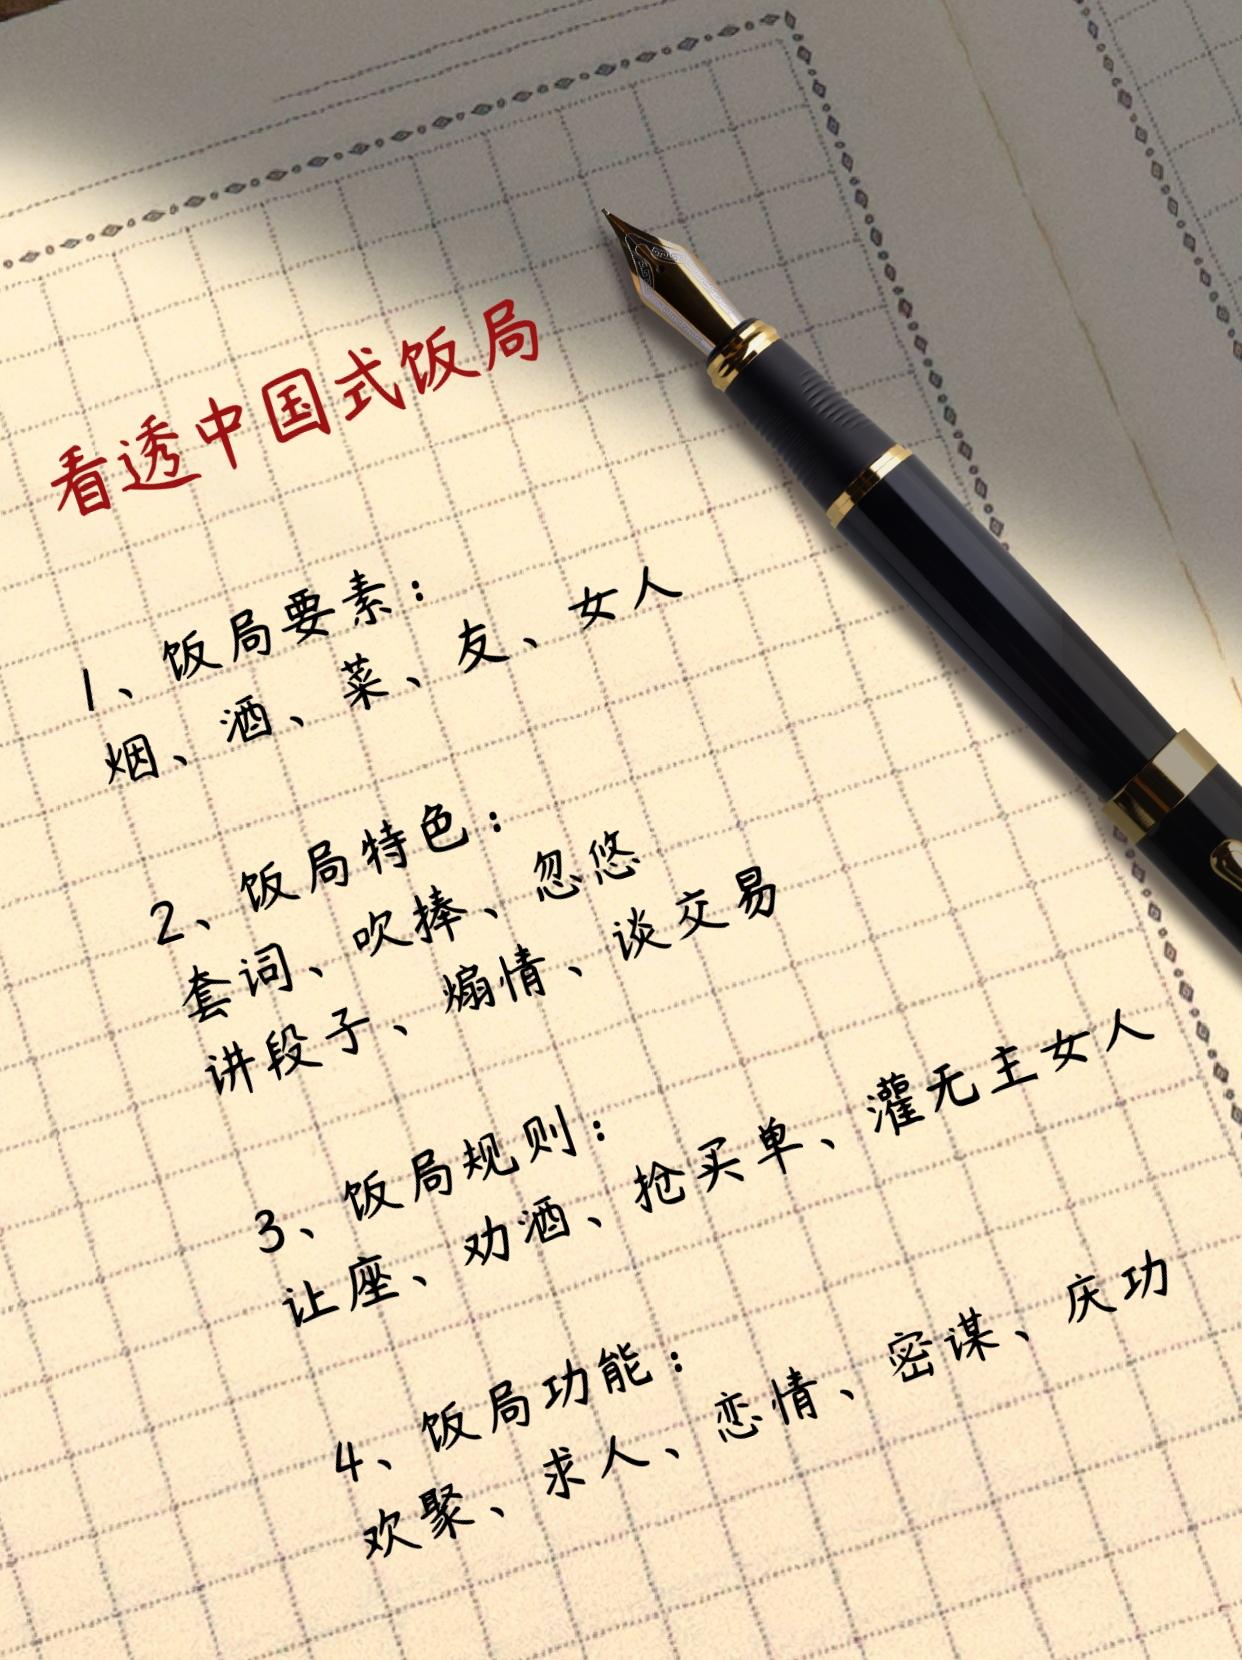 看透中国式饭局
1、饭局要素：
烟、酒、菜、友、女人
2、饭局特色：
套词、吹捧、忽悠
讲段子、煽情、谈交易
3、饭局规则：
让座、劝酒、抢买单、灌无主女人
4、饭局功能：
欢聚、求人、恋情、密谋、庆功